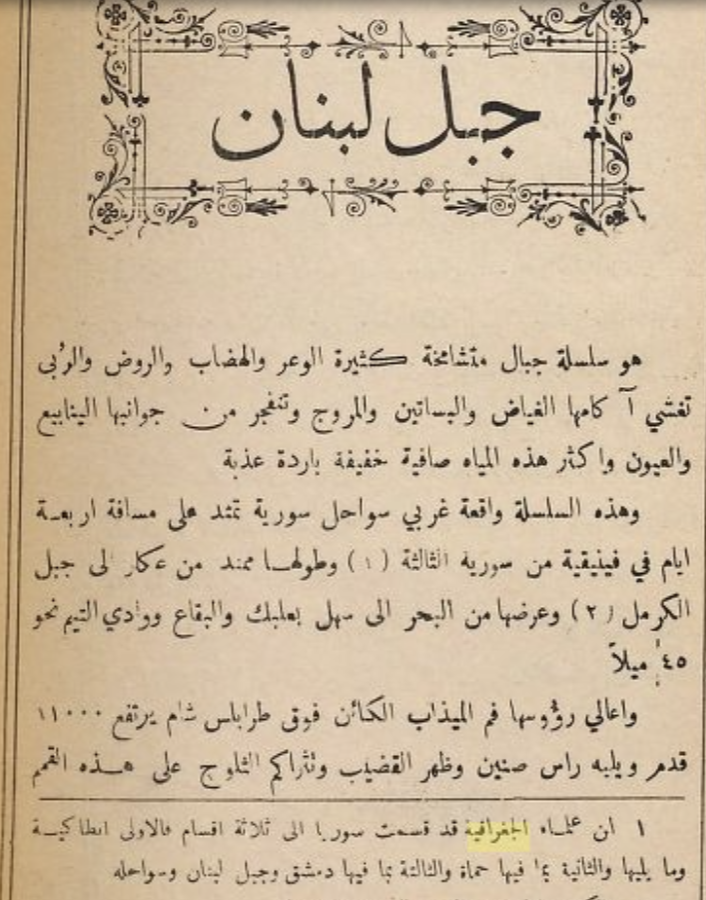 جبل لبنان
هو سلسلة جبال متشامخة كثيرة الوعر والهضاب والروض والرُبى
تغشي آكامها الغياض والبساتين والمروج وتنفجر من جوانبها الينابيع
والعيون واكثر هذه المياه صافية خفيفة باردة عذبة
وهذه السلسلة واقعة غربي سواحل سورية تمتد على مسافة اربعة
ايام في فينيقية من سورية الثالثة (١) وطولها ممتد من عكار الى جبل
الكرمل (٢) وعرضها من البحر الى سهل بعلبك والبقاع ووادي التيم نحو
٤٥ ميلاً
واعالي رؤوسها فم الميذاب الكائن فوق طرابلس شام يرتفع ١١٠٠٠
قدم ويليه راس صنين وظهر القضيب وتتراكم الثلوج على هذه القمم
١ ان علماء الجغرافية قد قسمت سوريا الى ثلاثة اقسام فالاولى انطاكية
وما يليها والثانية بما فيها حماة والثالثة بما فيها دمشق وجبل لبنان وسواحله